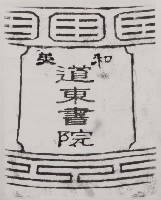 和英
道東書院